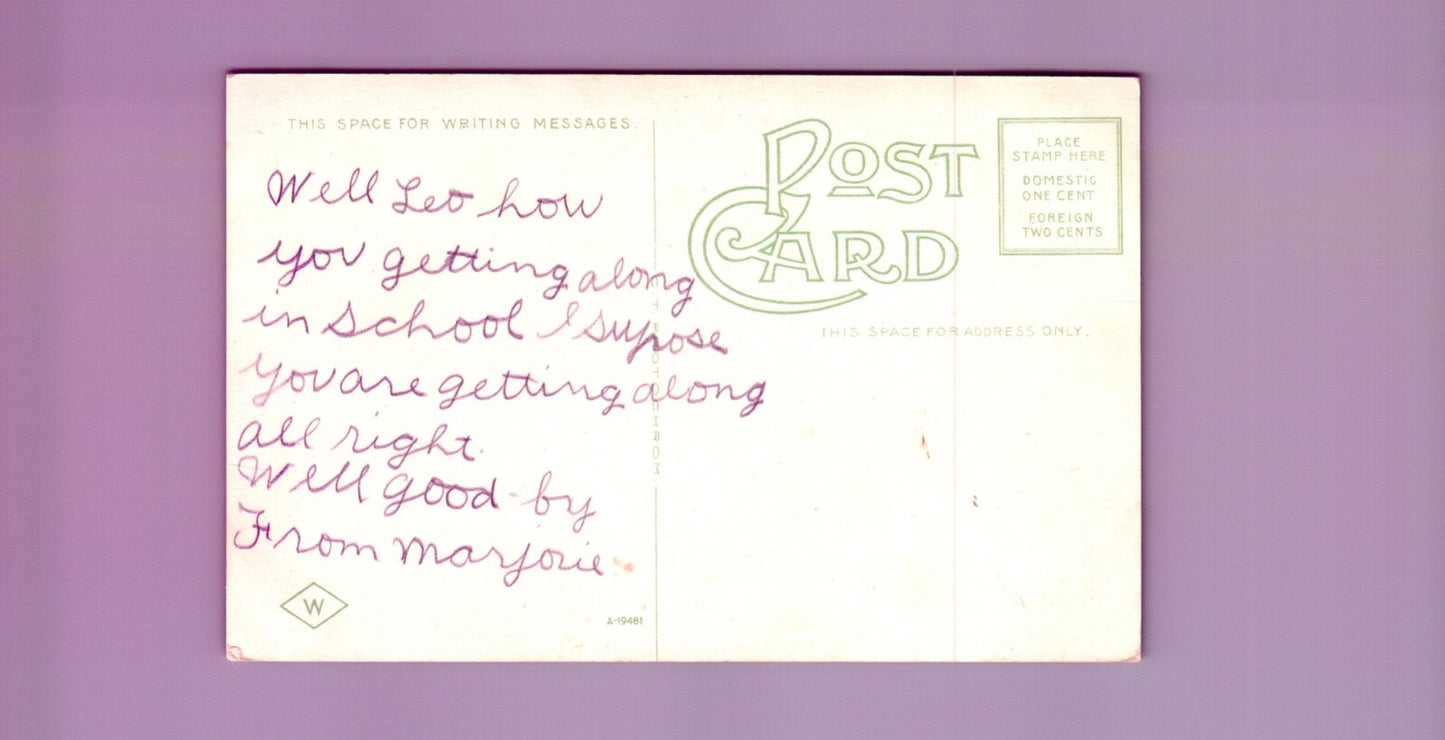 THIS SPACE FOR WRITING MESSAGES.
Well Leo how
you getting along
in school I supose
you are getting along
all right.
Well good-by
From Marjorie
W
A-19481
POST
CARD
THIS SPACE FOR ADDRESS ONLY.
PLACE
STAMP HERE
DOMESTIC
ONE CENT
FOREIGN
TWO CENTS